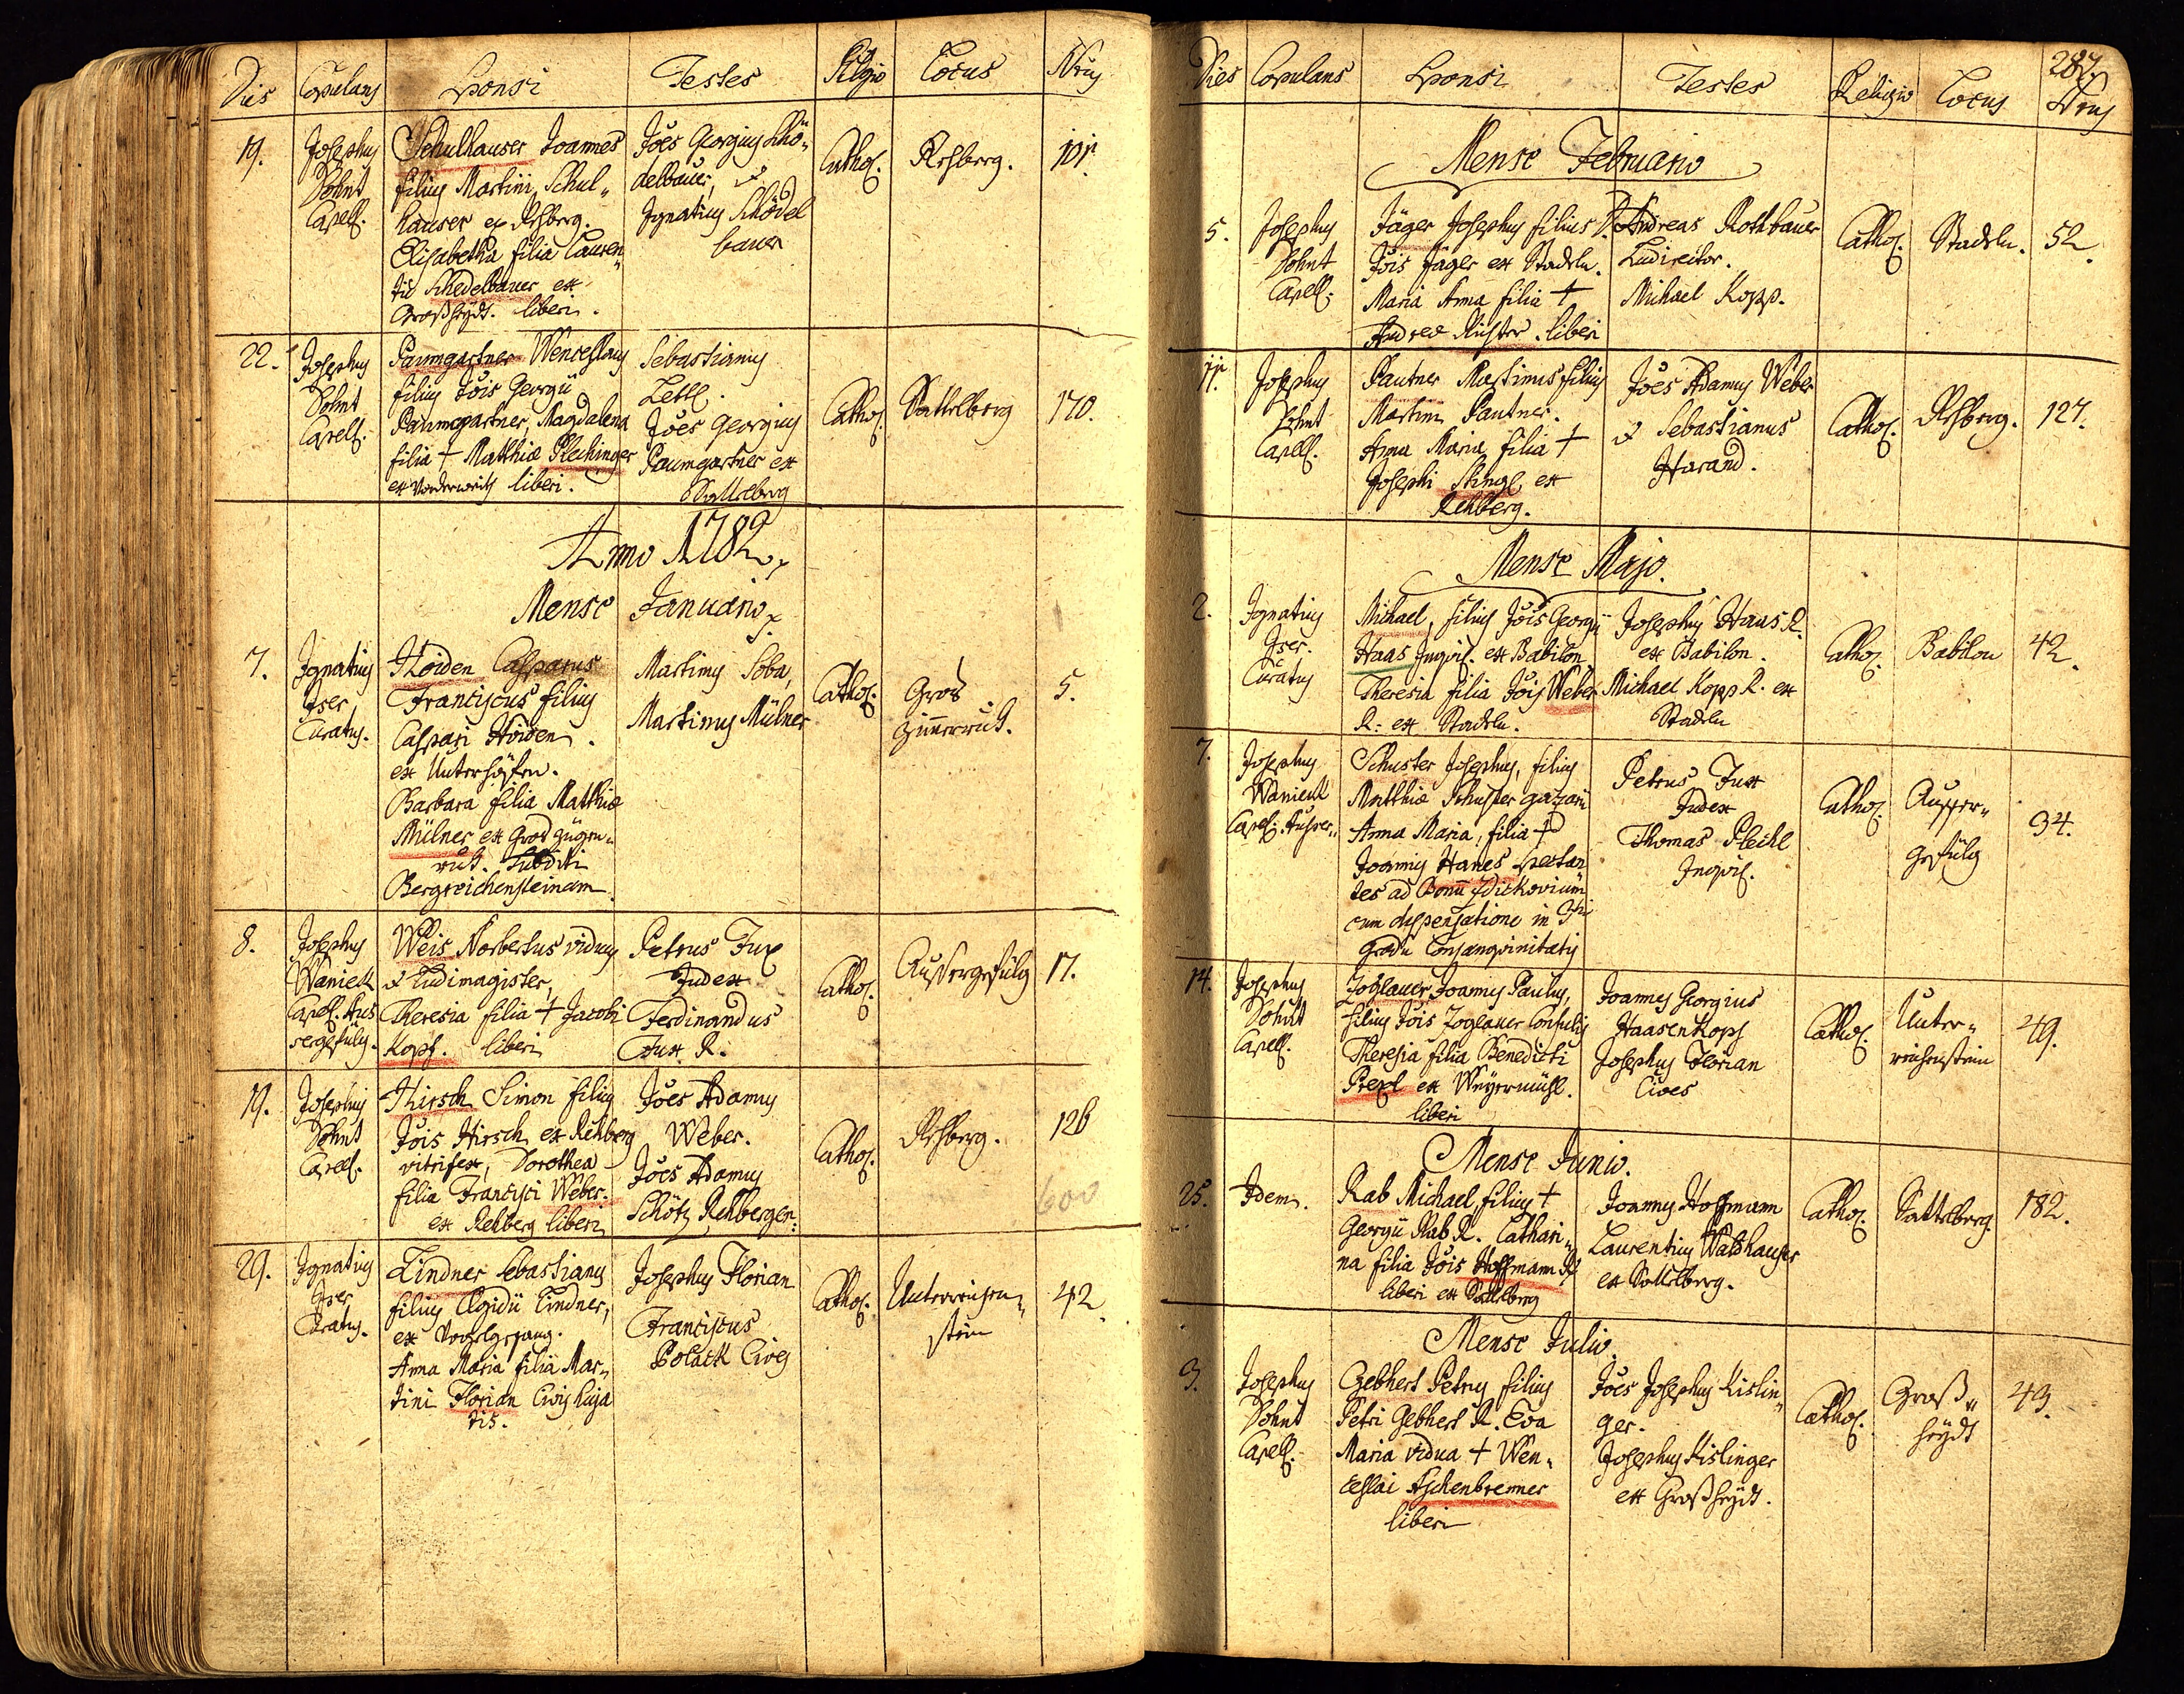 Dies Copulans Sponsi Testes Religio Locus Nrus
19. Josephus Dohnt Capell.
Schulhauser Joannes
filius Martini Schul„
hauser ex Rehberg.
Elisabetha filia Lauren„
tii Schedelbauer ex
Großheydt. liberi.
Jöes Georgius Schö„
delbauer, &
Ignatius Schödel
bauer
Cathol. Rehberg. 101.
22. Josephus Dohnt Capell.
Paumgartner Wenceslaus
filius Jöis Georgii
Paumgartner, Magdalena
filia + Matthiæ Plechinger
ex Vorderwirth liberi.
Sebastianus
Jöes Georgius
Paumgartner ex
Sattelberg
Cathol. Sattelberg 170.
Anno 1782.
Mense Januario.
7. Ignatius Iser Curatus.
Höiden Casparus
Franciscus filius
Caspari Höiden.
ex Unterhöfen.
Barbara filia Matthiæ
Mülner ex Gros
Subditi
Bergreichensteinam.
Martinus Soba,
Martinus Mülner
Cathol. Gros 5.
8. Josephus Waniek Capell. Aus
sergefülg.
Weis Norbertus viduus
& Ludimagister,
Theresia filia + Jacobi
Kopf. liberi
Petrus Fux
Judex
Ferdinandus
Fux R.
Cathol. Aussergefülg 17.
19. Josephus Dohnt Capell.
Hirsch Simon filius
Jöis Hirsch ex Rehberg
vitrifex, Dorothea
filia Francisci Weber.
ex Rehberg liberi
Jöes Adamus
Weber.
Jöes Adamus
Schötz Rehberger:
Cathol. Rehberg. 126
600
29. Ignatius Iser Curatus.
Lindner Sebastianus
filius Ægidii Lindner,
ex Vogelgesang.
Anna Maria filia Mar„
tini Florian Civis huja
tis.
Josephus Florian
Franciscus
Polack Cives
Cathol. Unterreichen„
stein 42.
287.
Dies Copulans Sponsi Testes Religio Locus Nrus
Mense Februario
5. Josephus Dohnt Capell.
Jäger Josephus filius
Jöis Jäger ex Stadeln.
Maria Anna filia +
Andreæ Richter. liberi
D. Andreas Rothbauer
Ludirector.
Michael Kopp.
Cathol. Stadeln. 52.
11. Josephus Dohnt Capell.
Pautner Martinus filius
Martini Pautner.
Anna Maria filia +
Josephi Stingl, ex
Rehberg.
Jöes Adamus Weber
& Sebastianus
Harand.
Cathol. Rehberg. 127.
Mense Majo.
2. Ignatius Iser. Curatus
Michael, filius Jöis Georgii
Haas Inqvil. ex Babilon
Theresia filia Jöis Weber
R: ex Stadeln.
Josephus Haas R.
ex Babilon.
Michael Kopp R. ex
Stadeln
Cathol. Babilon 42.
7. Josephus Waniek Capell. Ausser„
Schuster Josephus, filius
Matthiæ Schuster gazarii
Anna Maria, filia +
Joannis Hanes spectan
tes ad Bonu
cum dispensatione in
gradu Consangvinitatis
Petrus Fux
Judex
Thomas Plechl
Inqvil.
Cathol. Ausser„
gefülg 34.
14. Josephus Dohnt Capell.
Zoglauer Joannes Paulus,
filius Jöis Zoglauer Consulis
Theresia filia Benedicti
Prexl ex Weyermühl.
liberi
Joannes Georgius
Haasenkopf
Josephus Florian
Cives
Cathol. Unter„
reichenstein 29.
Mense Junio.
25. Idem.
Rab Michael filius +
Georgii Rab R. Cathari„
na filia Jöis Hoffmann R
liberi ex Sattelberg
Joannes Hoffmann
Laurentius Waldhauser
ex Sattelberg.
Cathol. Sattelberg. 182.
Mense Julio.
3. Josephus Dohnt Capell.
Gebhert Petrus filius
Petri Gebhert R. Eva
Maria vidua + Wen„
ceslai Aschenbrenner
liberi
Jöes Josephus Kislin„
ger.
Josephus Kislinger
ex Großheydt.
Cathol. Groß„
heydt 43.